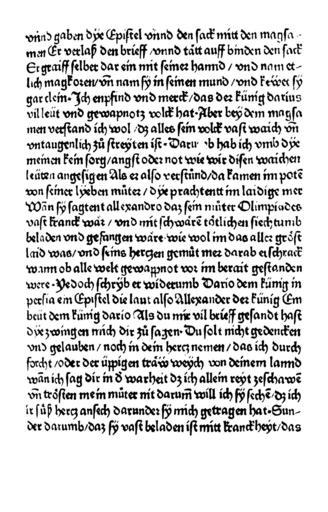 vnnd gaben dye Epistel vnnd den sack mitt den magsa-
men Er verlaß den brieff/vnnd tätt auff binden den sack
Er graiff selber dar ein mit seiner hannd/vnd nam et-
lich magkoren/vn̄ nam sy in seinen mund/vnd kewet sy
gar clein·Jch enpfind vnd merck/das der künig darius
vil leüt vnd gewapnotz volck hat·Aber bey dem magsa
men verstand ich wol/dz alles sein volck vast waich vn̄
vntaugenlich zů streyten ist·Daru b hab ich vmb dye
meinen kein sorg/angst oder not wie wir disen waichen
leüten angesigen Als er also verstünd/da kamen im poten
von seiner lyeben můter/dye prachtent im laidige mer
Wan̄ sy sagten allexandro daz sein můter Olimpiades
vast kranck wär/vnd mit schwärē tötlichen siechtumb
beladen vnd gefangen wäre·wie wol im das aller gröst
laid was/vnd seins hertzen gemüt mer darab erschrack
wann ob alle welt gewappnot vor im berait gestanden
were·Yedoch schryb er widerumb Dario dem künig in
persia ein Epistel die laut also Allexander der künig Em
beüt dem künig dario Als du mir vil brieff gesandt hast
dye zwingen mich dir zů sagen·Du solt nicht gedencken
vnd gelauben/noch in dein hertz nemen/das ich durch
forcht/oder der üppigen träw weych von deinem lannd
wan̄ ich sag dir in d̄ warheit dz ich allein reyt ze schawē
vn̄ trösten mein můter nit darum̄ will ich sy sechē/dz ich
ir süß hertz ansech darunder sy mich getragen hat·Sun-
der darumb/daz sy vast beladen ist mitt kranckheyt/das